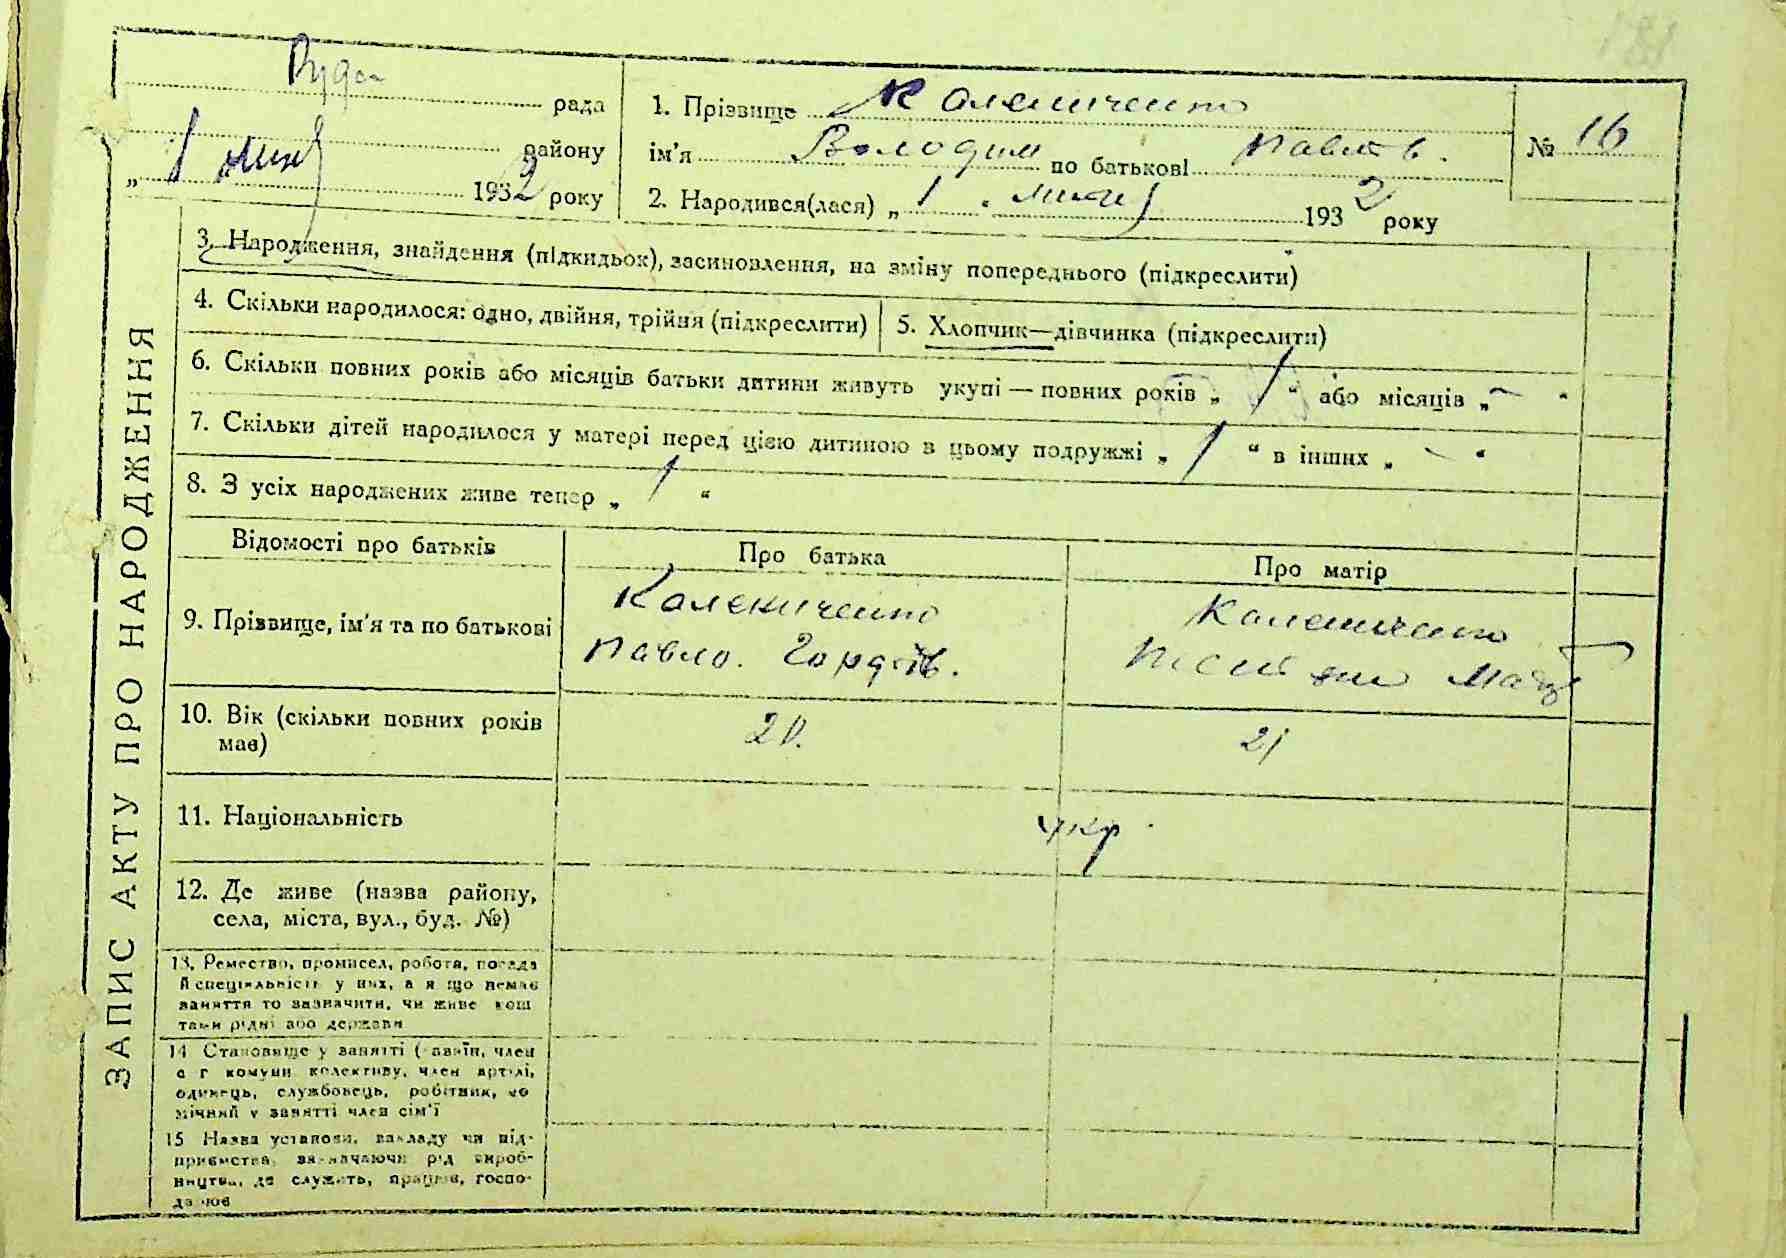 181
Руда
рада
району
„ 1 липня 1932 року
1. Прізвище Калениченко
ім'я Володим по батькові Павлов.
2. Народився(лася) „ 1 . липня 1932 року
№ 16
ЗАПИС АКТУ ПРО НАРОДЖЕННЯ
3. Народження, знайдення (підкидьок), засиновлення, на зміну попереднього (підкреслити)
4. Скільки народилося: одно, двійня, трійня (підкреслити)
5. Хлопчик—дівчинка (підкреслити)
6. Скільки повних років або місяців батьки дитини живуть укупі — повних років „ 1 “ або місяців „ – “
7. Скільки дітей народилося у матері перед цією дитиною в цьому подружжі „ 1 “ в інших „ – “
8. З усіх народжених живе тепер „ 1 “
Відомості про батьків
Про батька
Про матір
9. Прізвище, ім'я та по батькові
Калениченко
Павло. Гордіїв.
Калениченко
10. Вік (скільки повних років
має)
20.
21
11. Національність
укр.
12. Де живе (назва району,
села, міста, вул., буд. №)
13. Ремество, промисел, робота, посада
й спеціяльність у них, а я що немає
заняття то зазначити, чи живе кош
тами рідні або держави
14 Становище у занятті (хазяїн, член
с г комуни колективу, член артілі,
одинець, службовець, робітник, по
мічний у занятті член сім'ї
15 Назва установи, закладу чи під-
приємства, зазначаючи рід вироб-
ництва, де служить, працює, госпо-
дарює